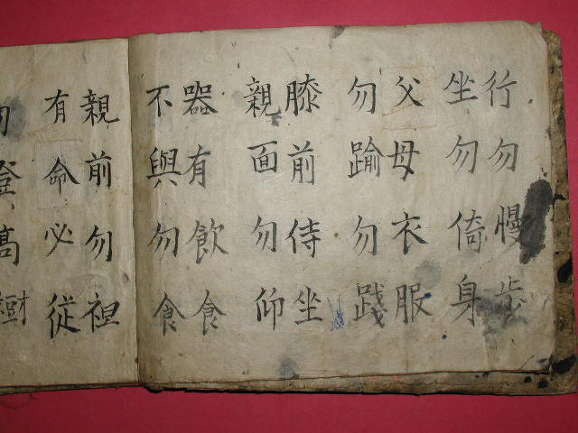 行勿慢步
坐勿倚身
父母衣服
勿踰勿踐
膝前侍坐
親面勿仰
器有飲食
不與勿食
親前勿袒
有命必従
登髙樹